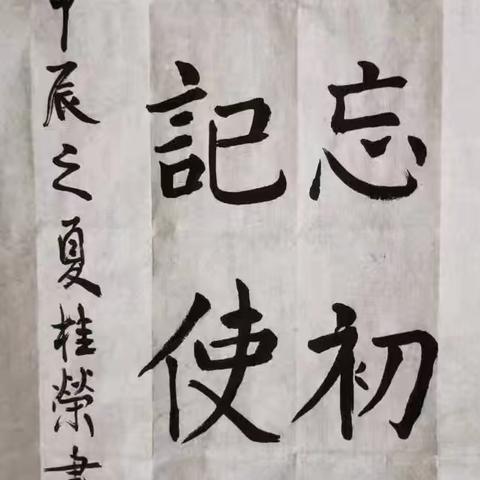 忘初
記使
甲辰之夏桂榮書